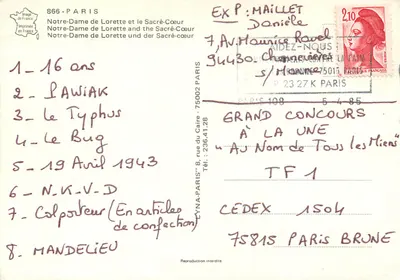 866 - PARIS
Notre-Dame de Lorette et le Sacré-Cœur
Notre-Dame de Lorette and the Sacré-Cœur
Notre-Dame de Lorette und der Sacré-Cœur
1 - 16 ans
2 - PAWIAK
3 - Le Typhus
4 - Le Bug
5 - 19 Avril 1943
6 - N-K-V-D
7 - Colporteur (En articles
de confection)
8. MANDELIEU
"LYNA-PARIS" 8, rue du Caire - 75002 PARIS
Tél. : 236.41.28
Reproduction interdite
EXP: MAILLET
Danièle
7, Av. Maurice Ravel
94430. Chennevières
s/Marne
2,10
AIDEZ-NOUS
75015 PARIS
23 27 K PARIS
PARIS 108 5-4-85
GRAND CONCOURS
À LA UNE
"Au Nom de Tous les Miens"
TF1
CEDEX 1504
75815 PARIS BRUNE